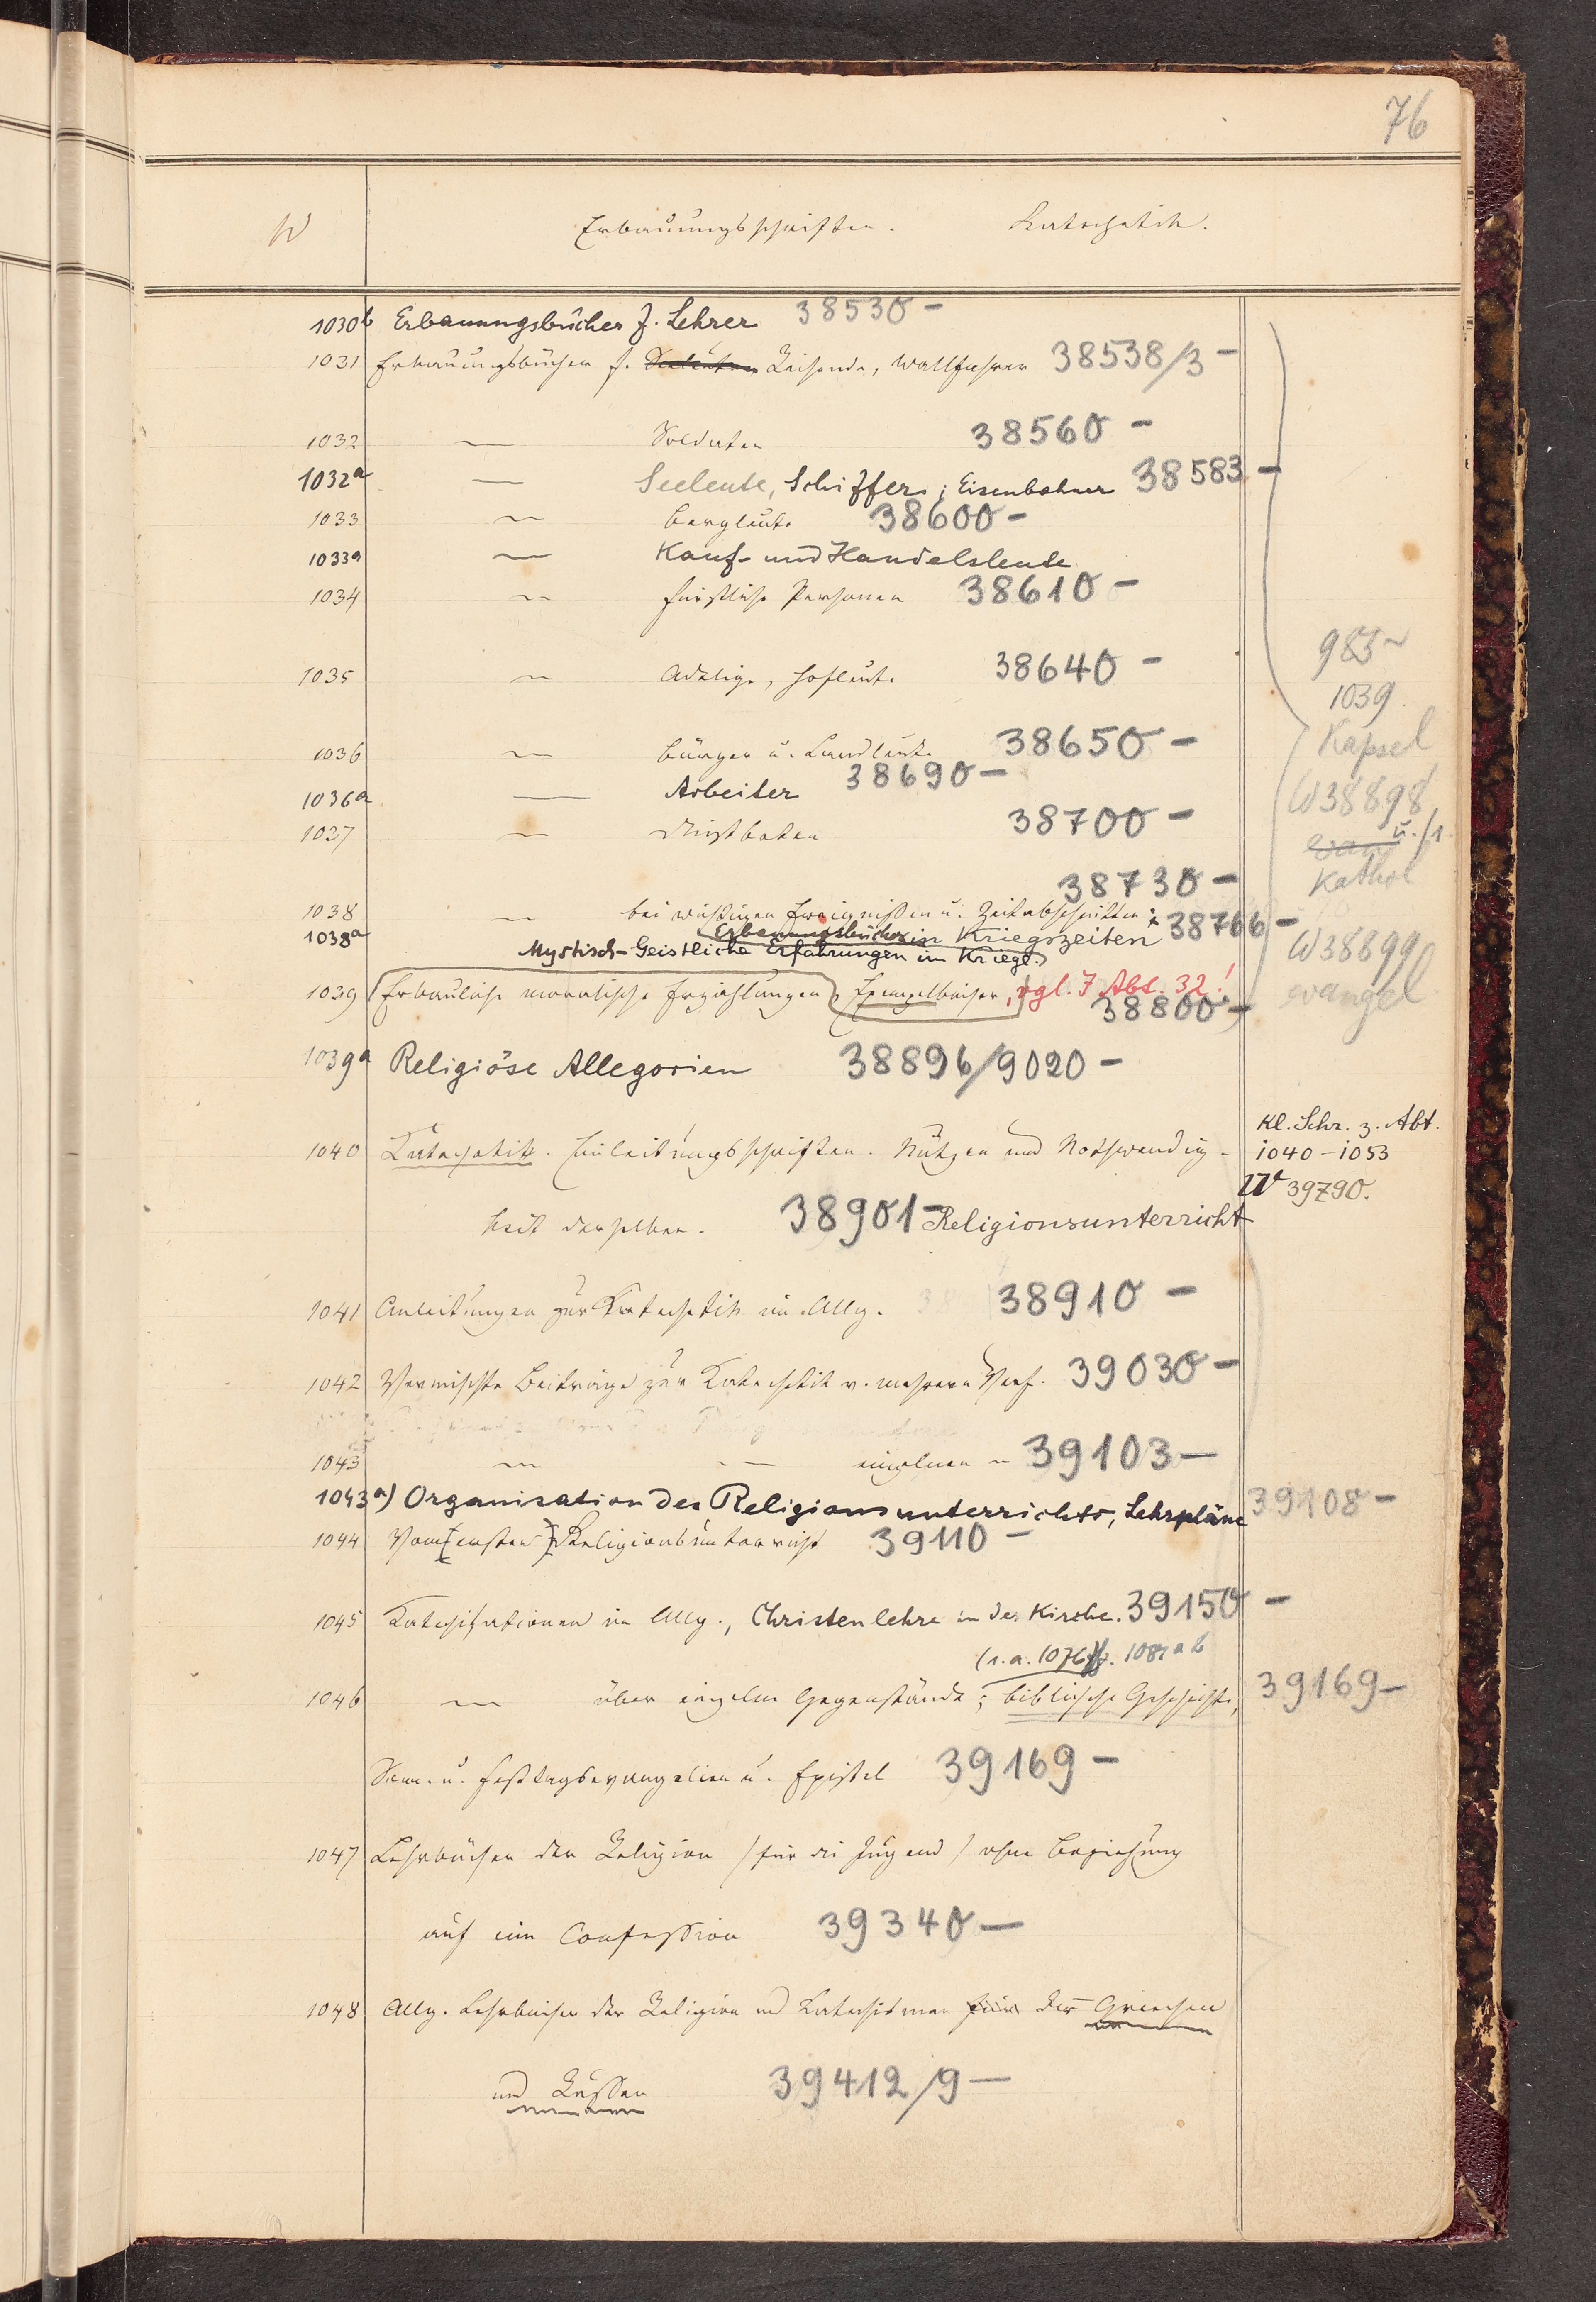 76
W Erbauungsschriften. Katechetik.
1030b Erbauungsbücher f. Lehrer 38530 –
1031 Erbauungsbücher f. Seeleute Reisende, Wallfahrer 38538/3 –
1032 — Soldaten 38560 –
1032a — Seeleute, Schiffer; Eisenbahner 38583 –
1033 — Bergleute 38600 –
1033a — Kauf- und Handelsleute
1034 — fürstliche Personen 38610 –
1035 — Adelige, Hofleute 38640 –
1036 — Bürger u. Landleute 38650 –
1036a — Arbeiter 38690 –
1037 — Dienstboten 38700 –
38730 –
1038 — bei wichtigen Ereignissen u. Zeitabschnitten;
1038a Erbauungsbücher in Kriegszeiten 38766 –
Mystisch-Geistliche Erfahrungen im Kriege.
1039 Erbauliche moralische Erzählungen, Exempelbücher, vgl. J Abt. 32!
38800 –
1039a Religiöse Allegorien 38896/9020 –
1040 Katechetik. Einleitungsschriften. Nutzen und Nothwendig-
heit derselben. 38901 – Religionsunterricht
1041 Anleitungen zur Katechetik im Allg. 38910 –
1042 Vermischte Beiträge zur Katechetik v. mehrern Verf. 39030 –
1043 — — einzelnen — 39103 —
1043a) Organisation des Religionsunterrichts, Lehrpläne 39108 –
1044 Vom [ersten] Religionsunterricht 39110 –
1045 Katechisationen im Allg., Christenlehre in der Kirche. 39150 –
(s. a. 1076ff. 1081ab
1046 — über einzelne Gegenstände; biblische Geschichte, 39169 –
Sonn. u. Festtagsevangelien u. Epistel 39169 –
1047 Lehrbücher der Religion (für die Jugend) ohne Beziehung
auf eine Confession 39340 —
1048 Allg. Lehrbücher der Religion und Katechismen für der Griechen
und Russen 39412/9 —
983 –
1039.
Kapsel
W 38898
u. /1.
evang
Kathol
W 38899
evangel
Kl. Schr. z. Abt.
1040 – 1053
W 39790.